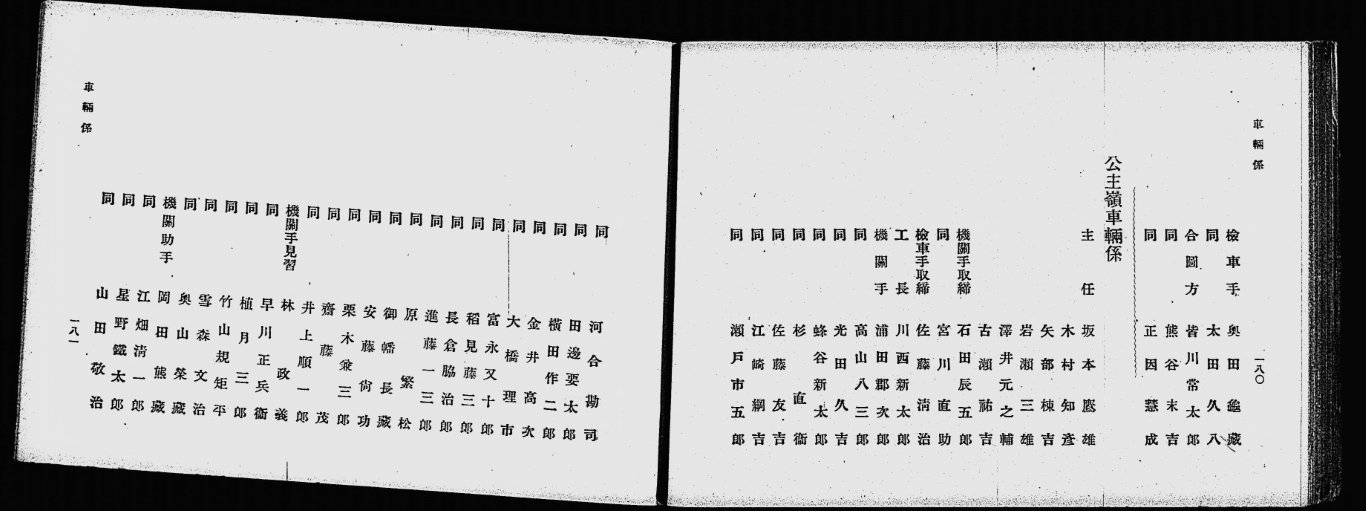 車輛係
一八〇
檢車手 奥田龜藏
同 太田久八
合圖方 皆川常太郎
同 熊谷末吉
同 正因慧成
公主嶺車輛係
主任 坂本愿雄
木村知彦
矢部棟吉
岩瀬三雄
澤井元之輔
古瀬祐吉
機關手取締 石田辰五郎
同 宮川直助
檢車手取締 佐藤淸治
工長 川西新太郎
機關手 浦田郡次郎
同 高山八三郎
同 光田久吉
同 蜂谷新太郎
同 杉直衞
同 佐藤友吉
同 江崎綱吉
同 瀬戸市五郎
同 河合勘司
同 田邊要太郎
同 横田作二郎
同 金井高次
同 大橋理市
同 富永又十郎
同 稻見藤三郎
同 長倉脇治郎
同 進藤一三郎
同 原繁松
同 御幡長藏
同 安藤尙功
同 栗木兼三郎
同 齋藤茂
同 井上順一郎
機關手見習 林政義
同 早川正兵衞
同 植月三郎
同 竹山規矩平
同 雪森文治
同 奥山榮藏
機關助手 岡田熊藏
同 江畑淸一郎
同 星野鐵太郎
同 山田敬治
車輛係
一八一